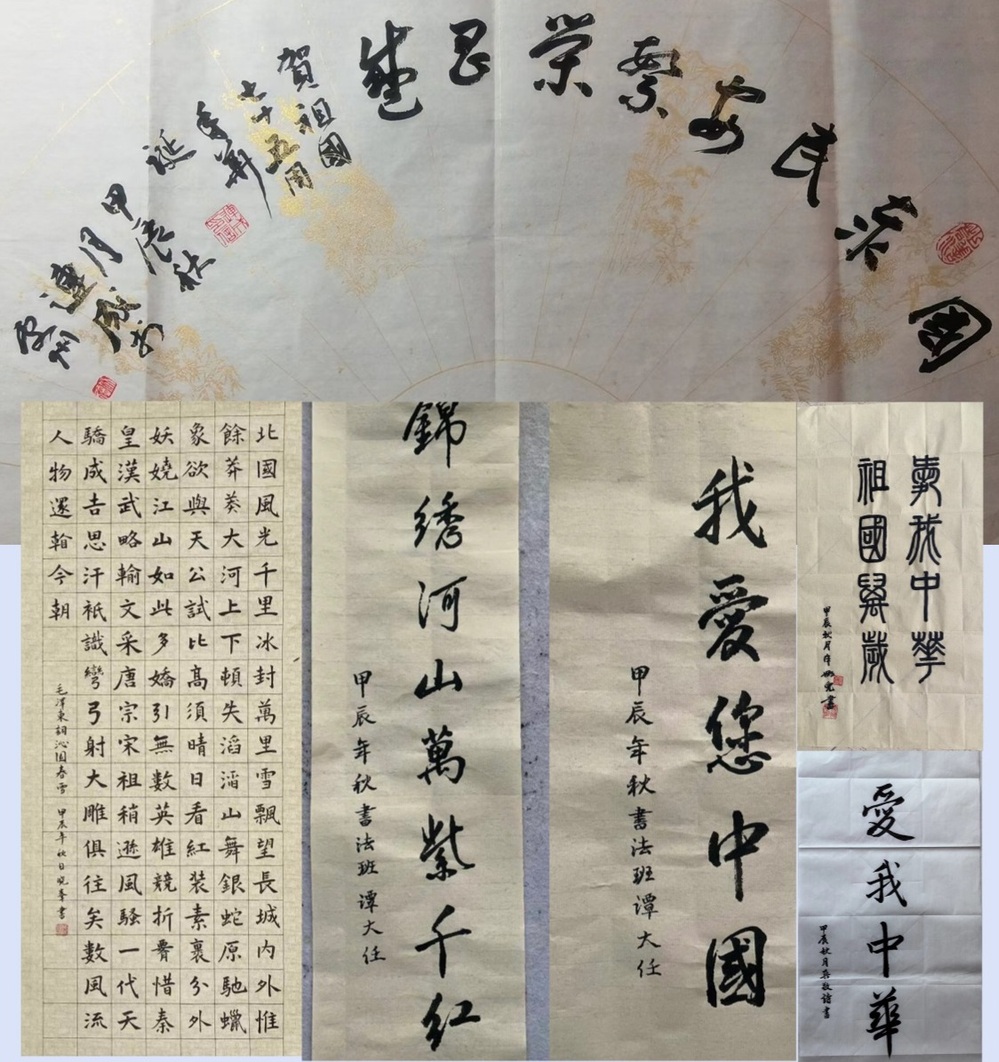 國泰民安繁荣昌盛
賀祖國
七十五周
年華
誕
甲辰秋
月
北國風光千里冰封萬里雪飄望長城內外惟
餘莽莽大河上下頓失滔滔山舞銀蛇原馳蠟
象欲與天公試比高須晴日看紅裝素裹分外
妖嬈江山如此多嬌引無數英雄競折腰惜秦
皇漢武略輸文采唐宗宋祖稍遜風騷一代天
驕成吉思汗祇識彎弓射大雕俱往矣數風流
人物還看今朝
毛澤東詞沁園春雪 甲辰年秋日曉華書
錦绣河山萬紫千红
甲辰年秋書法班譚大任
我愛您中國
甲辰年秋書法班譚大任
愛我中華
祖國萬歲
甲辰秋月
愛我中華
甲辰秋月